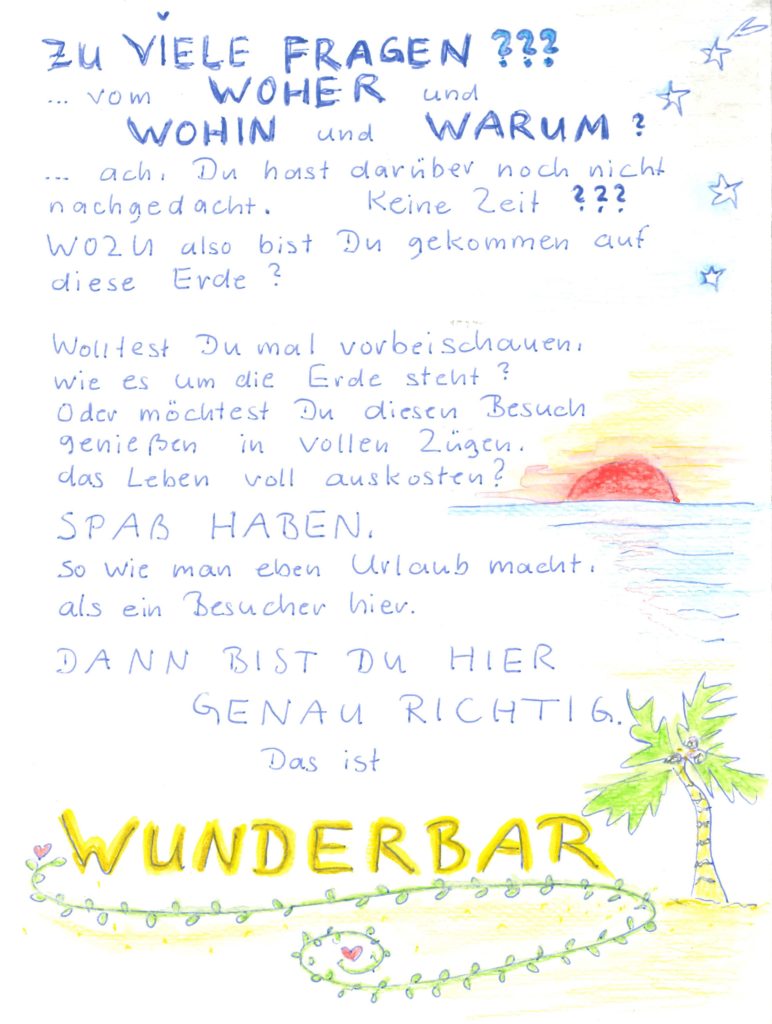 ZU VIELE FRAGEN ???
... vom WOHER und
WOHIN und WARUM ?
... ach. Du hast darüber noch nicht
nachgedacht. Keine Zeit ???
WOZU also bist Du gekommen auf
diese Erde ?
Wolltest Du mal vorbeischauen.
wie es um die Erde steht ?
Oder möchtest Du diesen Besuch
genießen in vollen Zügen.
das Leben voll auskosten ?
SPAß HABEN.
so wie man eben Urlaub macht.
als ein Besucher hier.
DANN BIST DU HIER
GENAU RICHTIG.
Das ist
WUNDERBAR